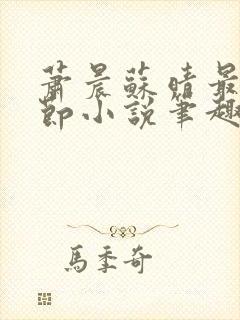 蕭晨蘇晴最
節小說筆趣
馬季奇